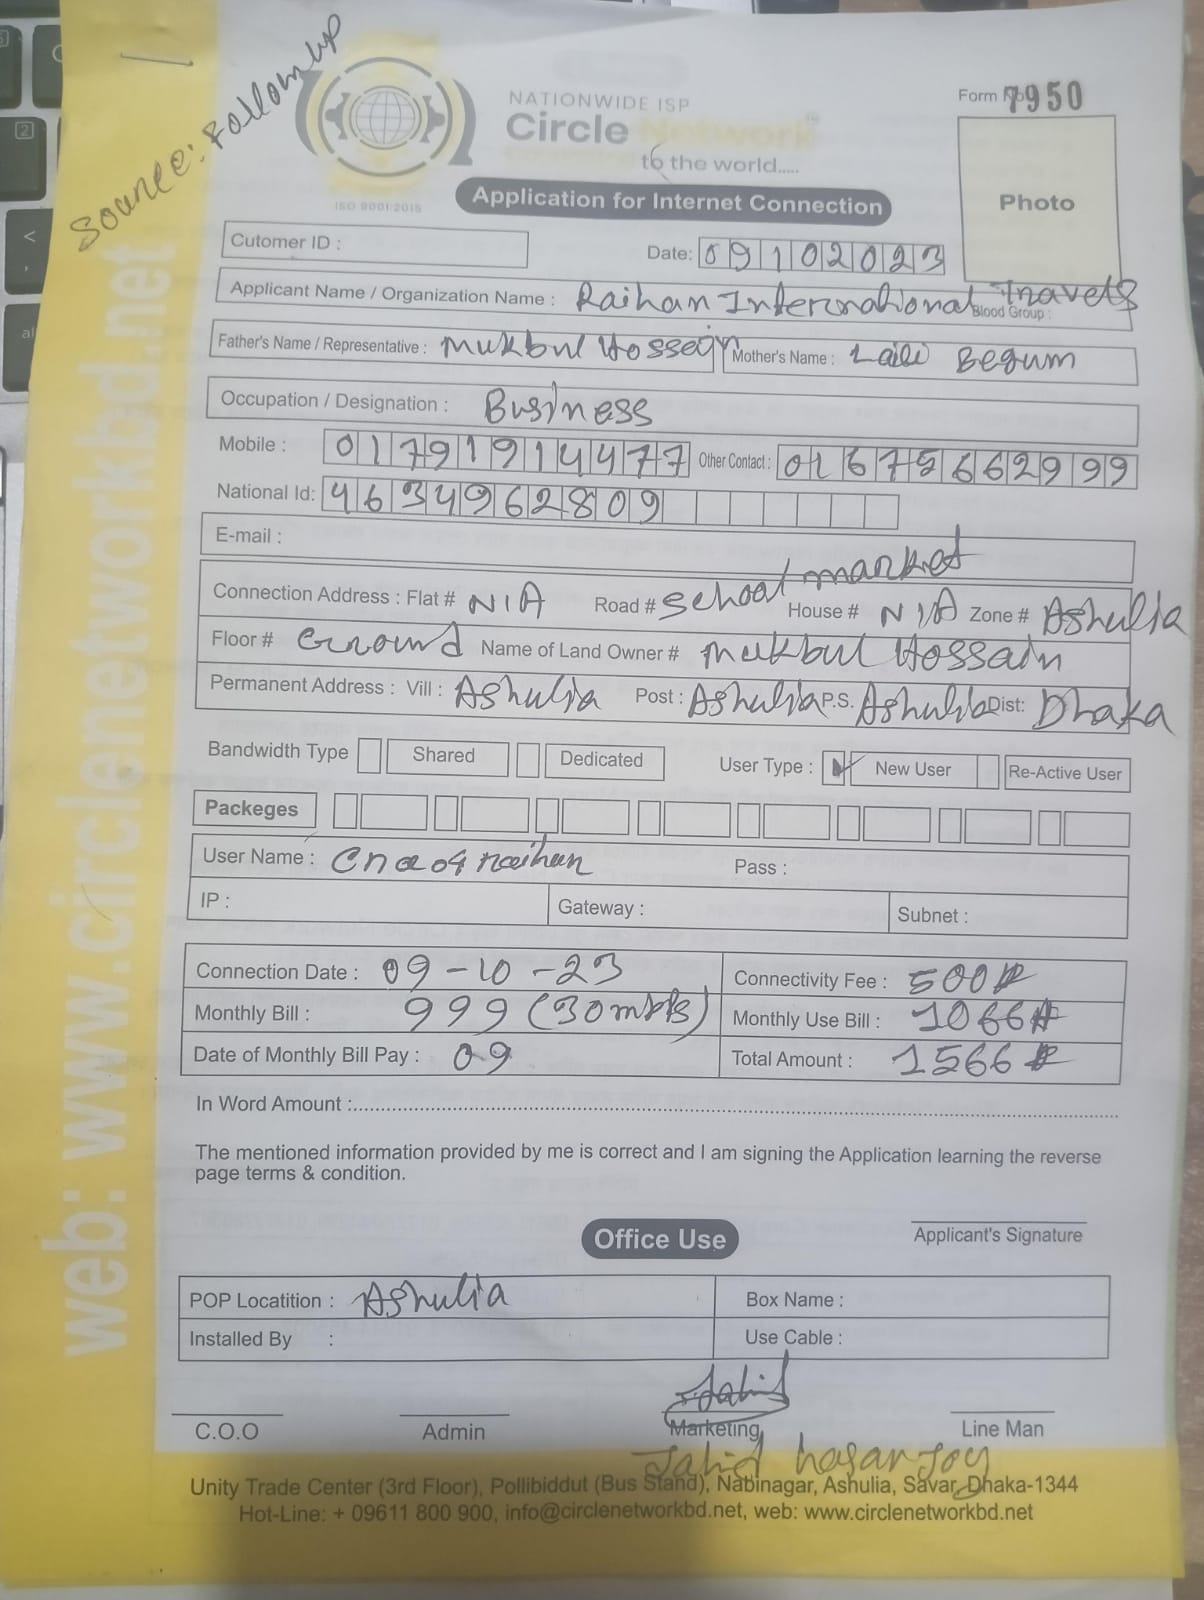 Source: Follow up
NATIONWIDE ISP
Circle Network
to the world.....
ISO 9001:2015
Form No 7950
Photo
Application for Internet Connection
Cutomer ID :
Date: 09102023
Applicant Name / Organization Name : Raihan International Travels
Blood Group :
Father's Name / Representative : Mukbul Hossain Mother's Name : Laili Begum
Occupation / Designation : Business
Mobile : 01791914477 Other Contact : 01675662999
National Id: 4634962809
E-mail :
Connection Address : Flat # N/A Road # School market House # N/A Zone # Ashulia
Floor # Ground Name of Land Owner # Mukbul Hossain
Permanent Address : Vill : Ashulia Post : Ashulia P.S. Ashulia Dist: Dhaka
Bandwidth Type Shared Dedicated User Type : New User Re-Active User
Packeges
User Name : Pass :
IP : Gateway : Subnet :
Connection Date : 09-10-23 Connectivity Fee : 500
Monthly Bill : 999 (30mbps) Monthly Use Bill : 1066
Date of Monthly Bill Pay : 09 Total Amount : 1566
In Word Amount :
The mentioned information provided by me is correct and I am signing the Application learning the reverse
page terms & condition.
Applicant's Signature
Office Use
POP Locatition : Ashulia Box Name :
Installed By : Use Cable :
Jahid
C.O.O Admin Marketing Line Man
Jahid hasan Joy
Unity Trade Center (3rd Floor), Pollibiddut (Bus Stand), Nabinagar, Ashulia, Savar, Dhaka-1344
Hot-Line: + 09611 800 900, info@circlenetworkbd.net, web: www.circlenetworkbd.net
web: www.circlenetworkbd.net